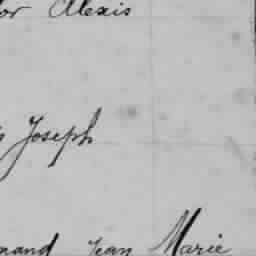 or Alexis
Joseph
mand Jean Marie